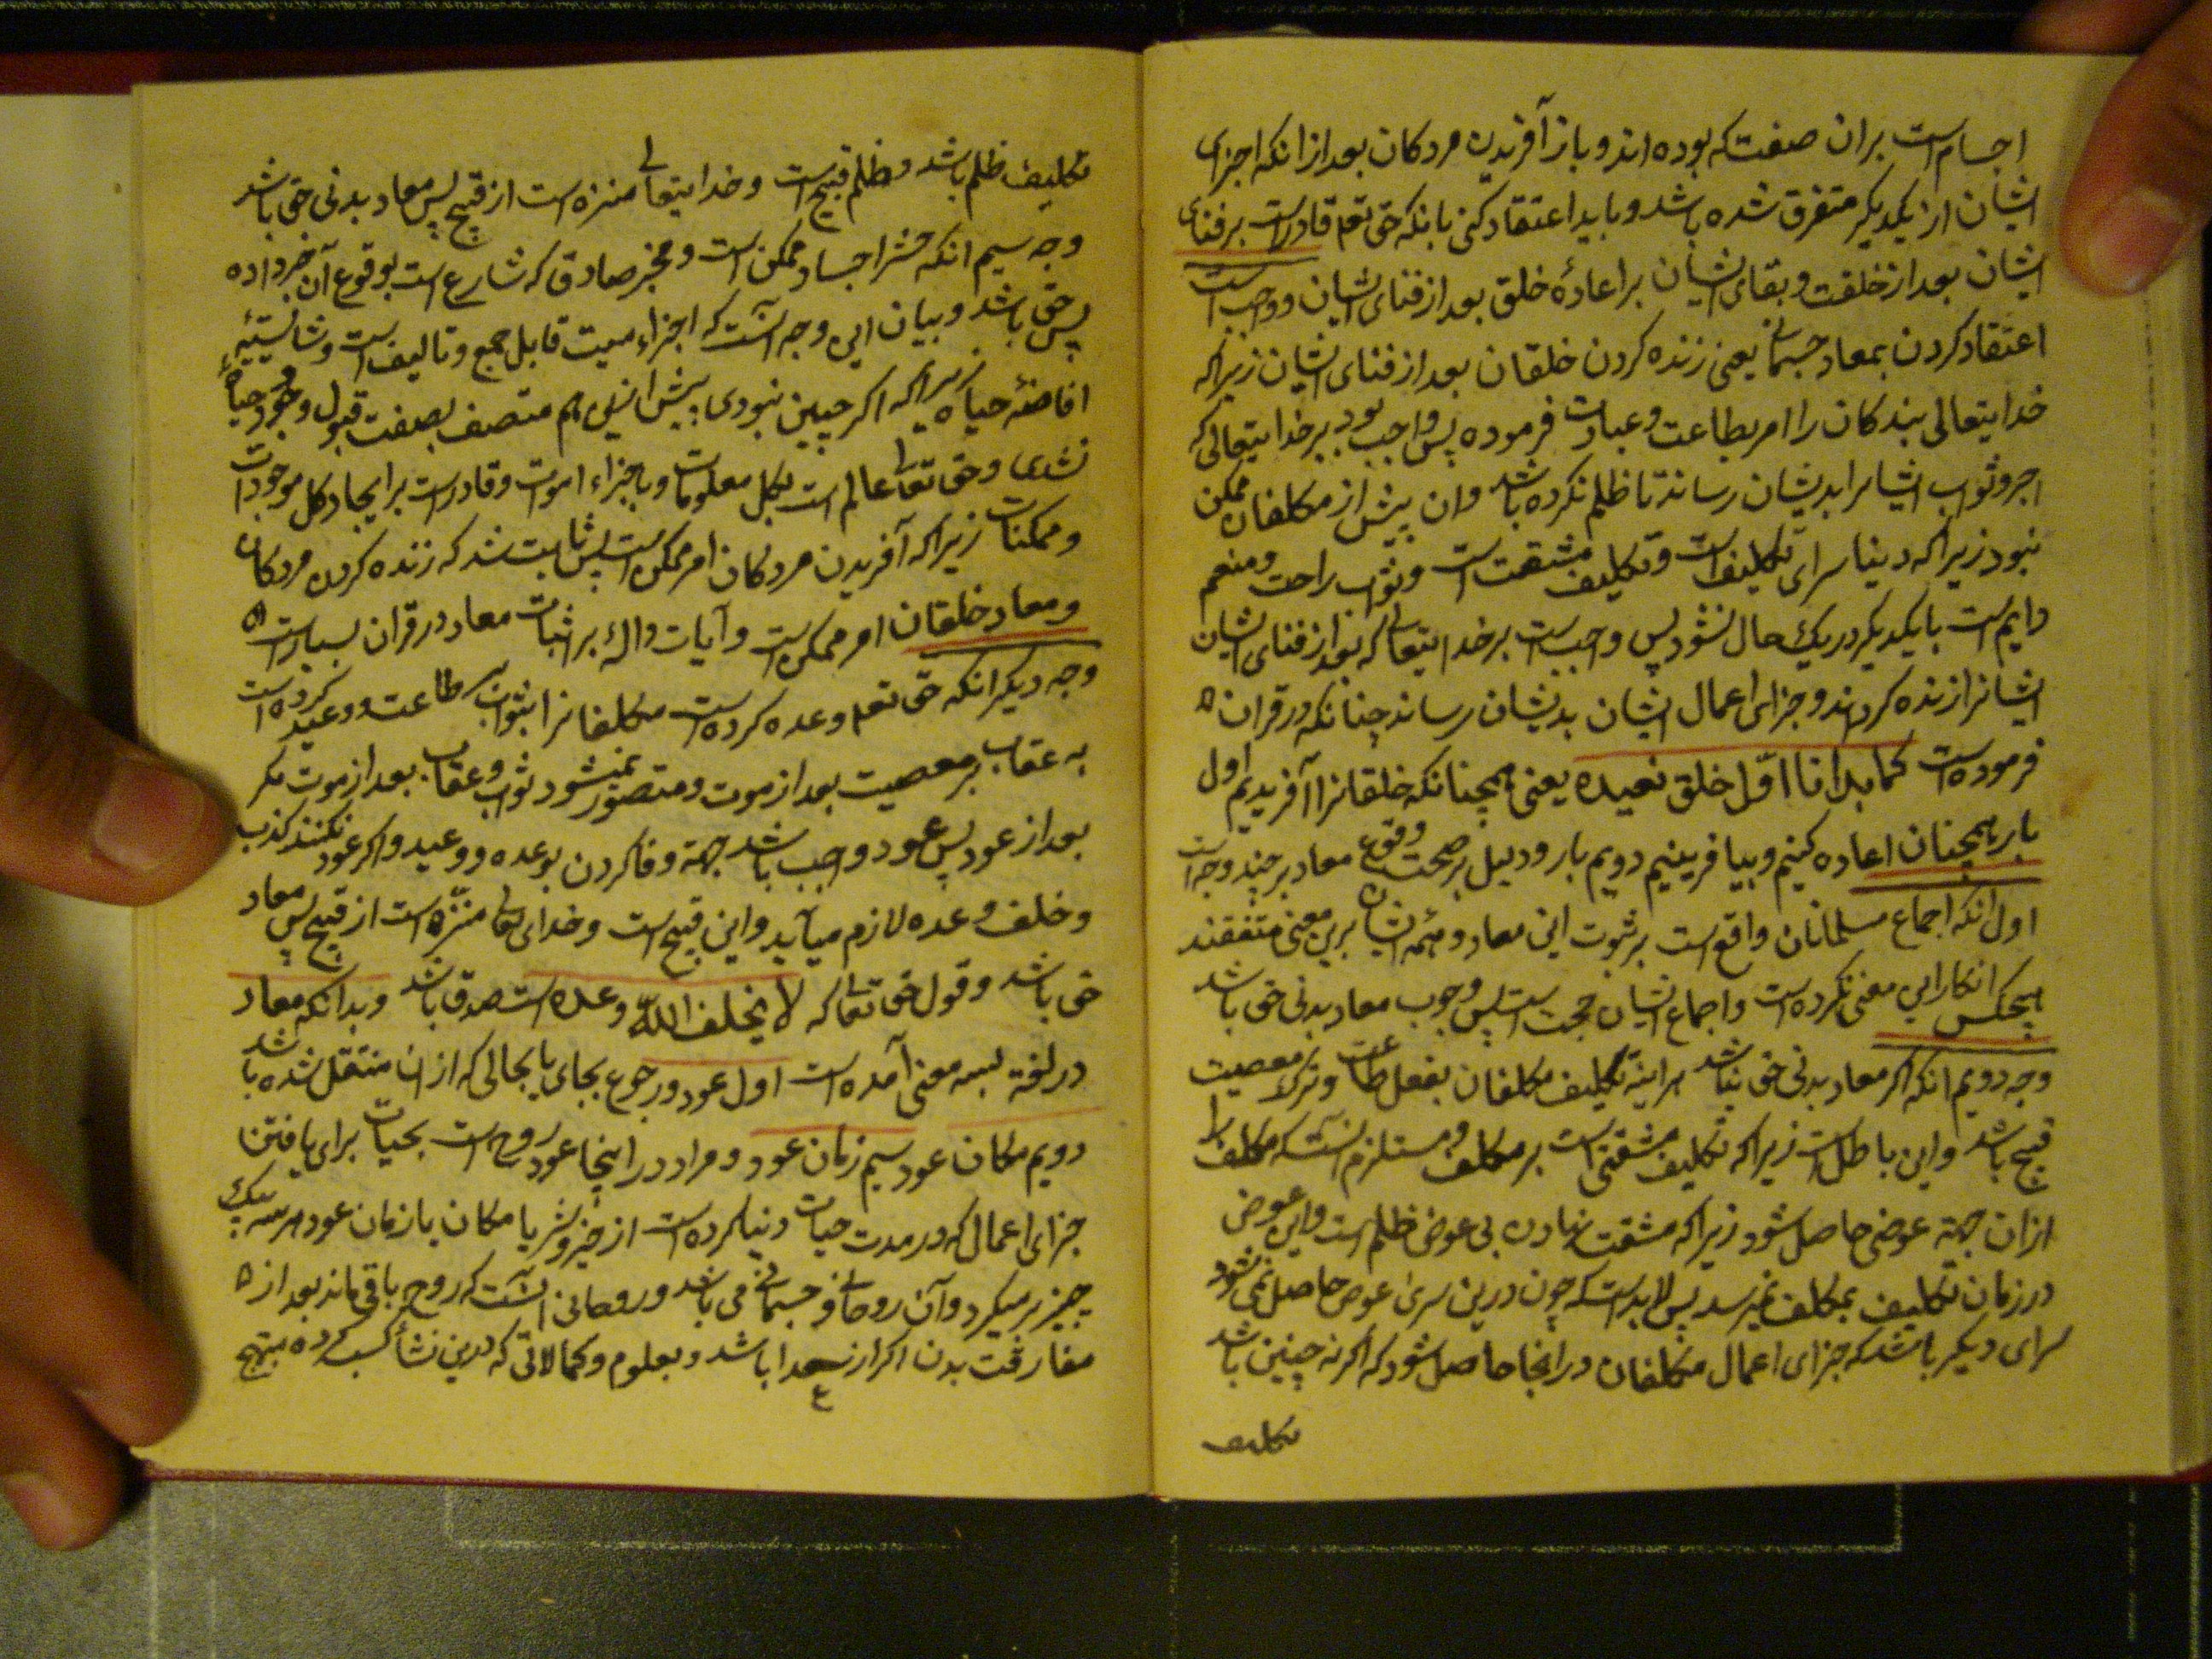 اجسام است بران صفت که بوده اند و باز آفریدن مردکان بعد از انکه اجزای
ایشان از یکدیکر متفرق شده باشد و باید اعتقاد کنی بانکه حق تعم قادر است بر فنای
ایشان بعد از خلقت و بقای ایشان بر اعادهٔ خلق بعد از فنای ایشان و واجب است
اعتقاد کردن بمعاد جسمانی یعنی زنده کردن خلقان بعد از فنای ایشان زیرا که
خدایتعالی بندکان را امر بطاعت و عبادت فرموده پس واجب بود بر خدایتعالی که
اجر و ثواب ایشانرا بدیشان رساند تا ظلم نکرده باشد و ان پیش از مکلفان ممکن
نبود زیرا که دینا سرای تکلیف است و تکلیف مشقت است و ثواب راحت و منعم
دایم است با یکدیکر در یک حال نشود پس واجب است بر خدایتعالی که بعد از فنای ایشان
ایشانرا زنده کرداند و جزای اعمال ایشان بدیشان رساند چنانکه در قران
فرموده است کما بدانا اوّل خلق نعیده یعنی همچنانکه خلقانرا آفریدیم اول
بار همچنان اعاده کنیم و بیافرینیم دویم بار و دلیل بر صحت وقوع معاد بر چند وجه است
اول انکه اجماع مسلمانان واقع است بر ثبوت این معاد و همه ایشان برین معنی متفقند
هیچکس انکار این معنی نکرده است و اجماع ایشان حجت است پس وجوب معاد بدنی حق باشد
وجه دویم انکه اکر معاد بدنی حق نباشد هر اینه تکلیف مکلفان بفعل طاعت و ترک معصیت
قبیح باشد و این باطل است زیرا که تکلیف مشقتی است بر مکلف و مستلزم انست که مکلف را
ازان جهة عوضی حاصل شود زیرا که مشقت نهادن بی عوض ظلم است و این عوض
در زمان تکلیف بمکلف نمیرسد پس لابد است که چون درین سرای عوض حاصل نمی شود
سرای دیکر باشد که جزای اعمال مکلفان در انجا حاصل شود که اکر نه چنین باشد
تکلیف
تکلیف ظلم باشد و ظلم قبیح است و خدایتعالی منزه است از قبیح پس معاد بدنی حق باشد
وجه سیم انکه حشر اجساد ممکن است و مخبر صادق که شارع است بوقوع آن خبر داده
پس حق باشد و بیان این وجه انست که اجزاء میت قابل جمع و تالیف است و شایستهٔ
افاضهٔ حیاة زیرا که اکر چنین نبودی پیش ازین هم متصف بصفت قبول وجود و حیاة
نشدی و حق تعالی عالم است بکل معلومات و باجزاء اموات و قادر است بر ایجاد کل موجودات
و ممکنات زیرا که آفریدن مردکان امر ممکن است پس ثابت شد که زنده کردن مردکان
و معاد خلقان امر ممکن است و آیات داله بر اثبات معاد در قران بسیار است
وجه دیکر انکه حق تعم وعده کرده است مکلفانرا بثواب بر طاعت و وعید کرده است
به عقاب بر معصیت بعد از موت و متصور نمیشود ثواب و عقاب بعد از موت مکر
بعد از عود پس عود واجب باشد جهة وفا کردن بوعده و وعید و اکر عود نکنند کذب
و خلف وعده لازم میآید و این قبیح است و خدای تعالی منزّه است از قبیح پس معاد
حق باشد و قول حق تعالی که لا یخلف اللّه وعده است صدق باشد و بدانکه معاد
در لغة بسه معنی آمده است اول عود و رجوع بجای یا بحالی که ازان منتقل شده باشد
دویم مکان عود سیم زمان عود و مراد در اینجا عود روح است بحیات برای یافتن
جزای اعمال که در مدت حیات دنیا کرده است از خیر و شر یا مکان یا زمان عود هر سه یک
چیز بر میکردد و آن روحانی و جسمانی می باشد و روحانی انست که روح باقی ماند بعد از
مفارقت بدن اکر از سعدا باشد و بعلوم و کمالاتی که درین نشأ کسب کرده مبتهج